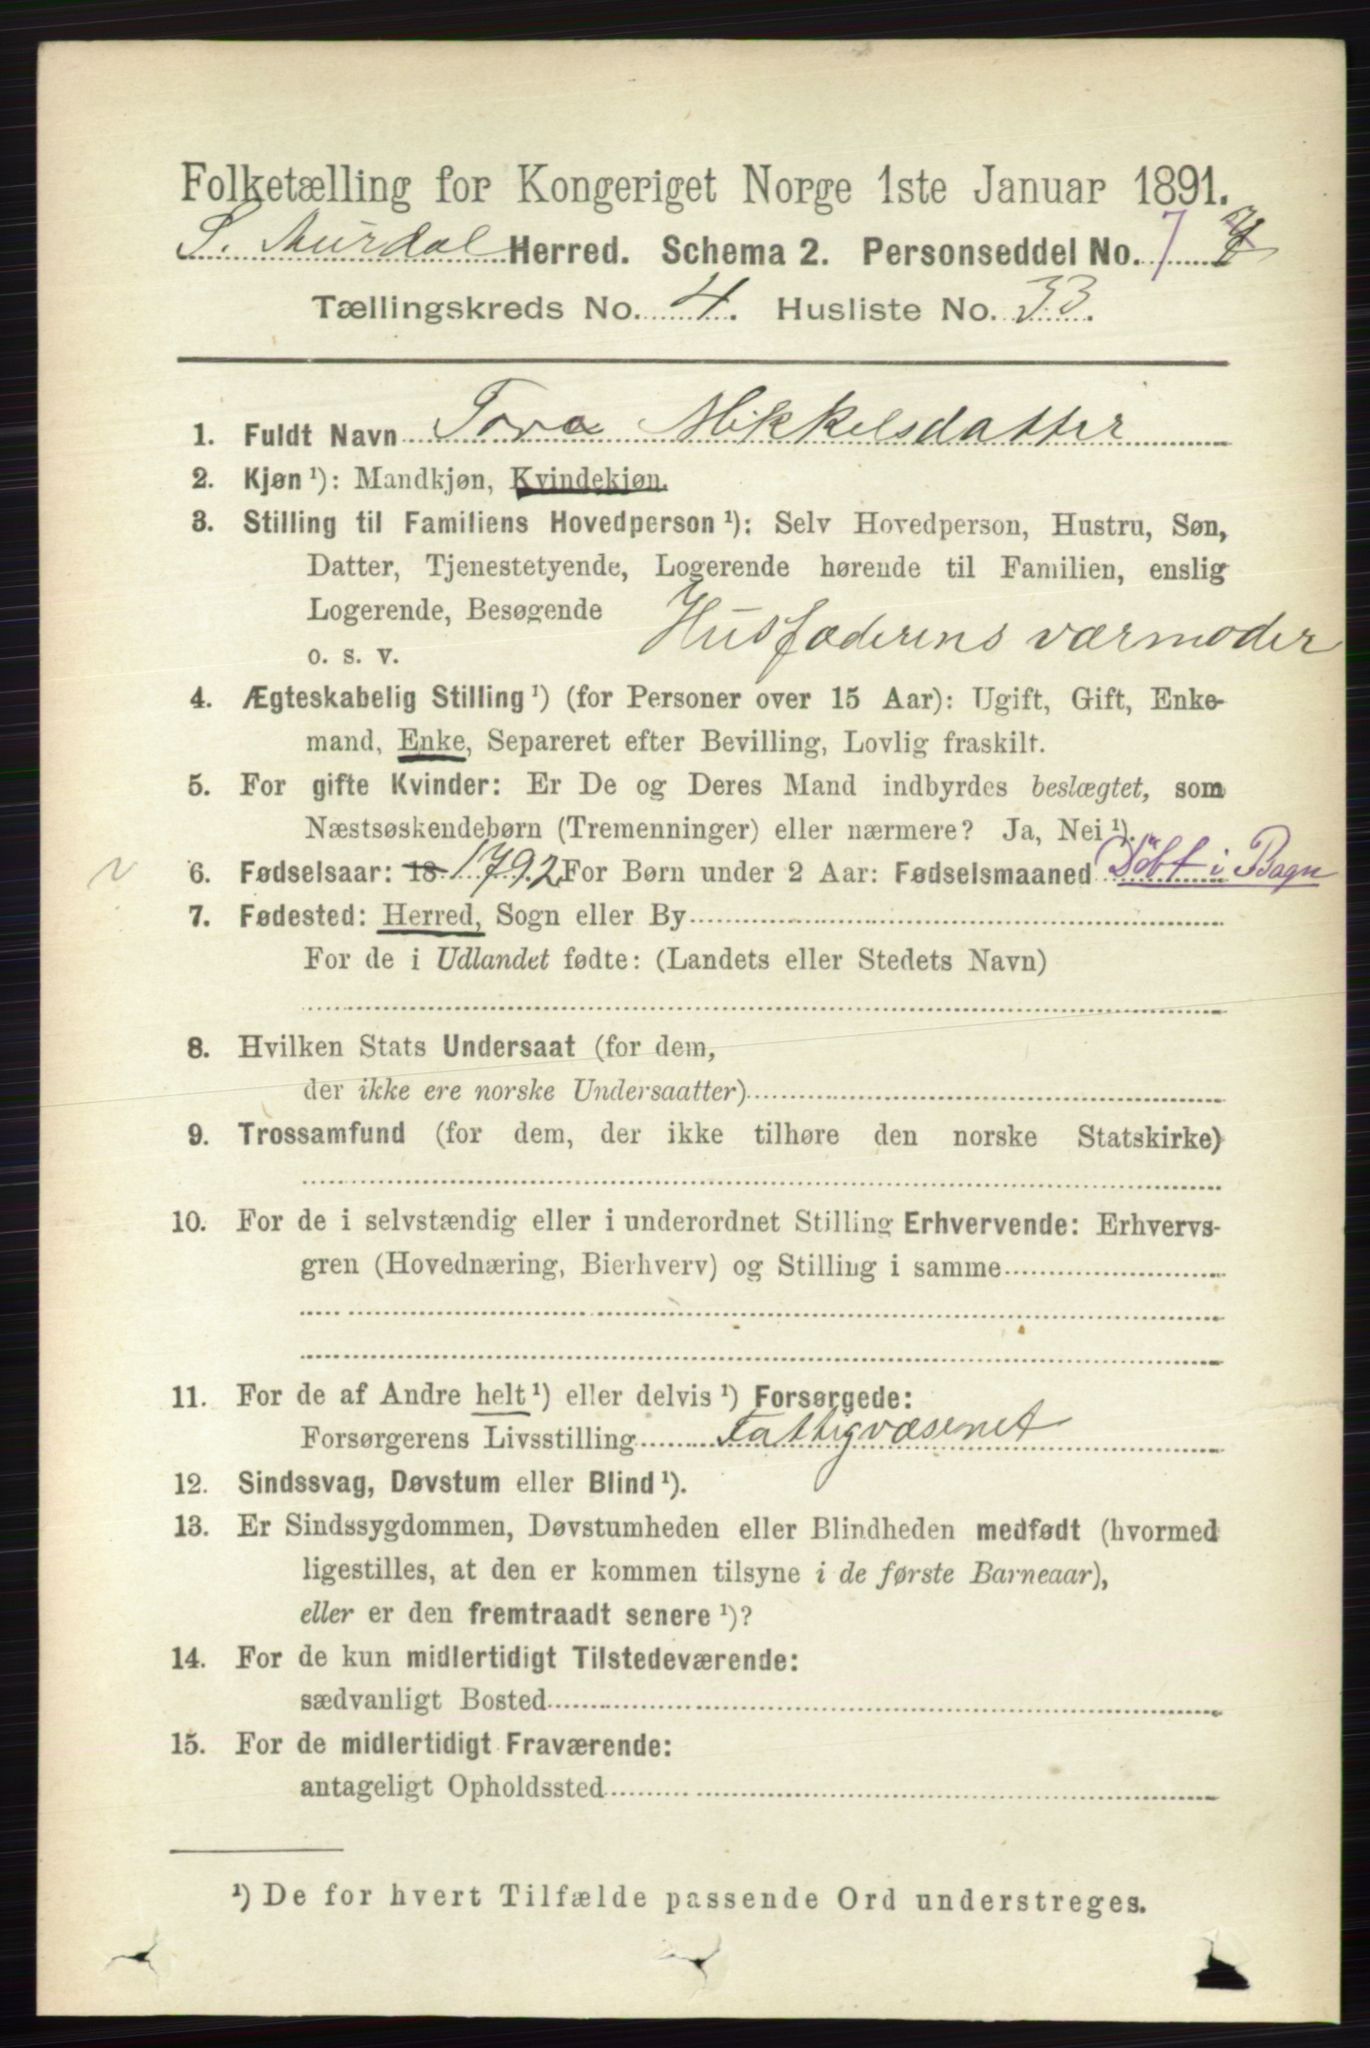 Folketælling for Kongeriget Norge 1ste Januar 1891.
S. Aurdal Herred. Schema 2. Personseddel No. 7
Tællingskreds No. 4. Husliste No. 33.
1. Fuldt Navn Tora Mikkelsdatter
2. Kjøn ¹): Mandkjøn, Kvindekjøn.
3. Stilling til Familiens Hovedperson ¹): Selv Hovedperson, Hustru, Søn,
Datter, Tjenestetyende, Logerende hørende til Familien, enslig
Logerende, Besøgende
o. s. v. Husfaderens værmoder
4. Ægteskabelig Stilling ¹) (for Personer over 15 Aar): Ugift, Gift, Enke-
mand, Enke, Separeret efter Bevilling, Lovlig fraskilt.
5. For gifte Kvinder: Er De og Deres Mand indbyrdes beslægtet, som
Næstsøskendebørn (Tremenninger) eller nærmere? Ja, Nei ¹).
6. Fødselsaar: 18 1792 For Børn under 2 Aar: Fødselsmaaned Døbt i Bagn
7. Fødested: Herred, Sogn eller By
For de i Udlandet fødte: (Landets eller Stedets Navn)
8. Hvilken Stats Undersaat (for dem,
der ikke ere norske Undersaatter)
9. Trossamfund (for dem, der ikke tilhøre den norske Statskirke)
10. For de i selvstændig eller i underordnet Stilling Erhvervende: Erhvervs-
gren (Hovednæring, Bierhverv) og Stilling i samme
11. For de af Andre helt ¹) eller delvis ¹) Forsørgede:
Forsørgerens Livsstilling Fattigvæsenet
12. Sindssvag, Døvstum eller Blind ¹).
13. Er Sindssygdommen, Døvstumheden eller Blindheden medfødt (hvormed
ligestilles, at den er kommen tilsyne i de første Barneaar),
eller er den fremtraadt senere ¹)?
14. For de kun midlertidigt Tilstedeværende:
sædvanligt Bosted
15. For de midlertidigt Fraværende:
antageligt Opholdssted
¹) De for hvert Tilfælde passende Ord understreges.